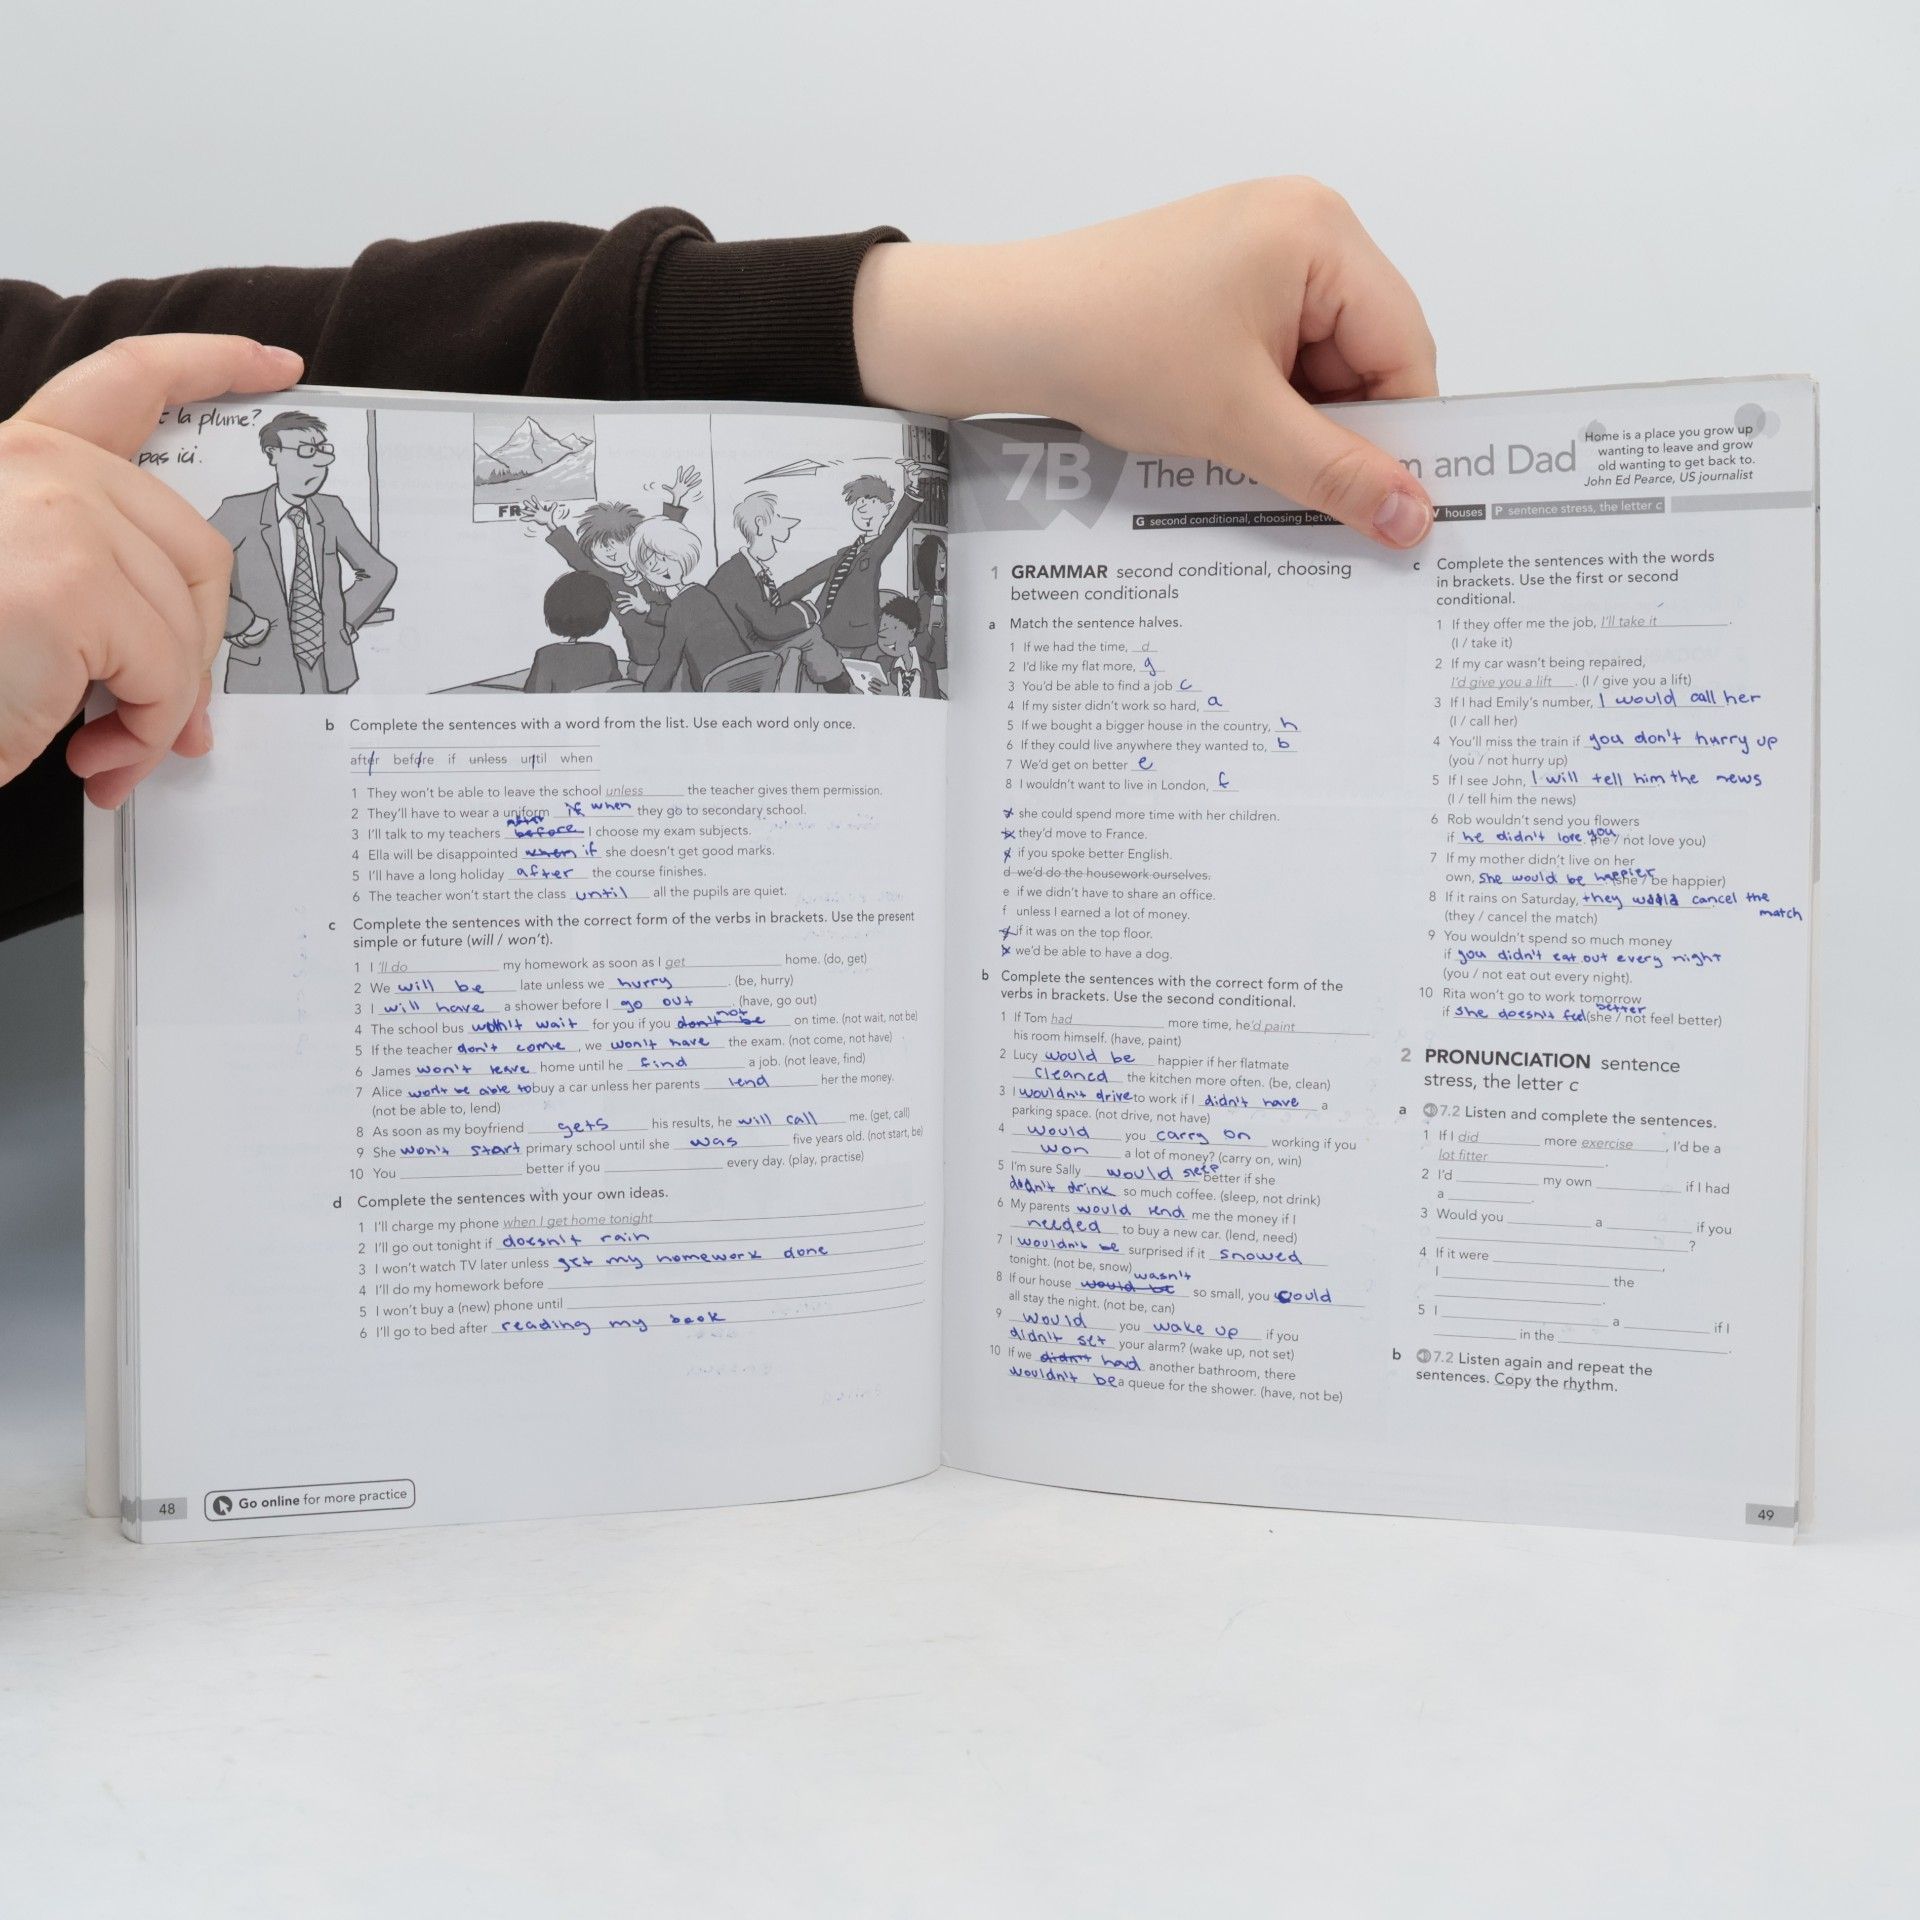 t la plume?
pas ici.
FR
b Complete the sentences with a word from the list. Use each word only once.
after before if unless until when
1 They won't be able to leave the school unless the teacher gives them permission.
2 They'll have to wear a uniform if when they go to secondary school.
3 I'll talk to my teachers before after I choose my exam subjects.
4 Ella will be disappointed when if she doesn't get good marks.
5 I'll have a long holiday after the course finishes.
6 The teacher won't start the class until all the pupils are quiet.
c Complete the sentences with the correct form of the verbs in brackets. Use the present
simple or future (will / won't).
1 I 'll do my homework as soon as I get home. (do, get)
2 We will be late unless we hurry. (be, hurry)
3 I will have a shower before I go out. (have, go out)
4 The school bus won't wait for you if you don't be not on time. (not wait, not be)
5 If the teacher don't come, we won't have the exam. (not come, not have)
6 James won't leave home until he find a job. (not leave, find)
7 Alice won't be able to buy a car unless her parents lend her the money.
(not be able to, lend)
8 As soon as my boyfriend gets his results, he will call me. (get, call)
9 She won't start primary school until she was five years old. (not start, be)
10 You ____ better if you ____ every day. (play, practise)
d Complete the sentences with your own ideas.
1 I'll charge my phone when I get home tonight
2 I'll go out tonight if doesn't rain
3 I won't watch TV later unless get my homework done
4 I'll do my homework before
5 I won't buy a (new) phone until
6 I'll go to bed after reading my book
48 Go online for more practice
7B The hou m and Dad
Home is a place you grow up
wanting to leave and grow
old wanting to get back to.
John Ed Pearce, US journalist
G second conditional, choosing betw V houses P sentence stress, the letter c
1 GRAMMAR second conditional, choosing
between conditionals
a Match the sentence halves.
1 If we had the time, d
2 I'd like my flat more, g
3 You'd be able to find a job c
4 If my sister didn't work so hard, a
5 If we bought a bigger house in the country, h
6 If they could live anywhere they wanted to, b
7 We'd get on better e
8 I wouldn't want to live in London, f
a she could spend more time with her children.
b they'd move to France.
c if you spoke better English.
d we'd do the housework ourselves.
e if we didn't have to share an office.
f unless I earned a lot of money.
g if it was on the top floor.
h we'd be able to have a dog.
b Complete the sentences with the correct form of the
verbs in brackets. Use the second conditional.
1 If Tom had more time, he'd paint
his room himself. (have, paint)
2 Lucy would be happier if her flatmate
cleaned the kitchen more often. (be, clean)
3 I wouldn't drive to work if I didn't have a
parking space. (not drive, not have)
4 would you carry on working if you
won a lot of money? (carry on, win)
5 I'm sure Sally would sleep better if she
didn't drink so much coffee. (sleep, not drink)
6 My parents would lend me the money if I
needed to buy a new car. (lend, need)
7 I wouldn't be surprised if it snowed
tonight. (not be, snow)
8 If our house would be wasn't so small, you could
all stay the night. (not be, can)
9 would you wake up if you
didn't set your alarm? (wake up, not set)
10 If we didn't had another bathroom, there
wouldn't be a queue for the shower. (have, not be)
c Complete the sentences with the words
in brackets. Use the first or second
conditional.
1 If they offer me the job, I'll take it.
(I / take it)
2 If my car wasn't being repaired,
I'd give you a lift. (I / give you a lift)
3 If I had Emily's number, I would call her
(I / call her)
4 You'll miss the train if you don't hurry up
(you / not hurry up)
5 If I see John, I will tell him the news
(I / tell him the news)
6 Rob wouldn't send you flowers
if he didn't love you. (he / not love you)
7 If my mother didn't live on her
own, she would be happier (she / be happier)
8 If it rains on Saturday, they would cancel the match
(they / cancel the match)
9 You wouldn't spend so much money
if you didn't eat out every night
(you / not eat out every night).
10 Rita won't go to work tomorrow
if she doesn't feel better (she / not feel better)
2 PRONUNCIATION sentence
stress, the letter c
a 7.2 Listen and complete the sentences.
1 If I did more exercise, I'd be a
lot fitter.
2 I'd ____ my own ____ if I had
a ____.
3 Would you ____ a ____ if you
____?
4 If it were ____,
I ____ the
____.
5 I ____ a ____ if I
____ in the ____.
b 7.2 Listen again and repeat the
sentences. Copy the rhythm.
49